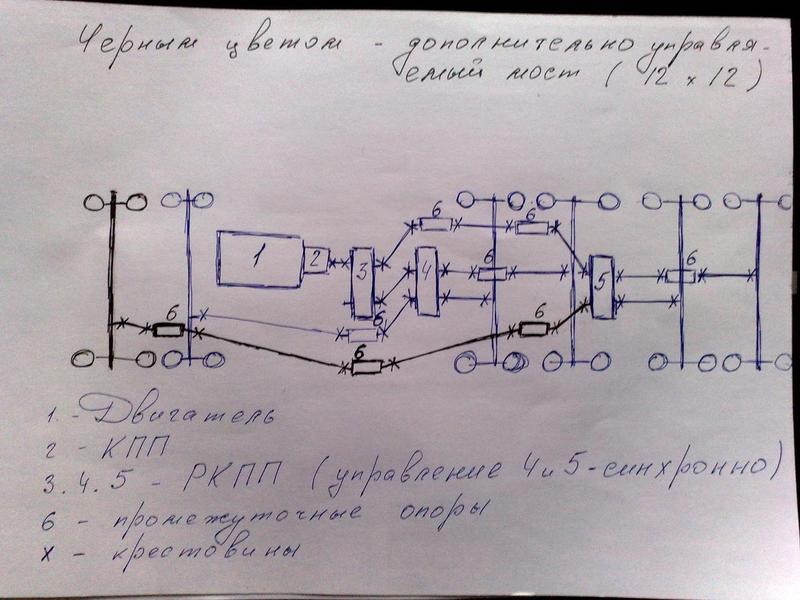 Черным цветом - дополнительно управля-
емый мост ( 12 x 12 )
6
6
1
2
3
4
6
5
6
6
6
6
6
1. - Двигатель
2 - КПП
3. 4. 5 - РКПП ( управление 4 и 5 - синхронно )
6 - промежуточные опоры
x - крестовины